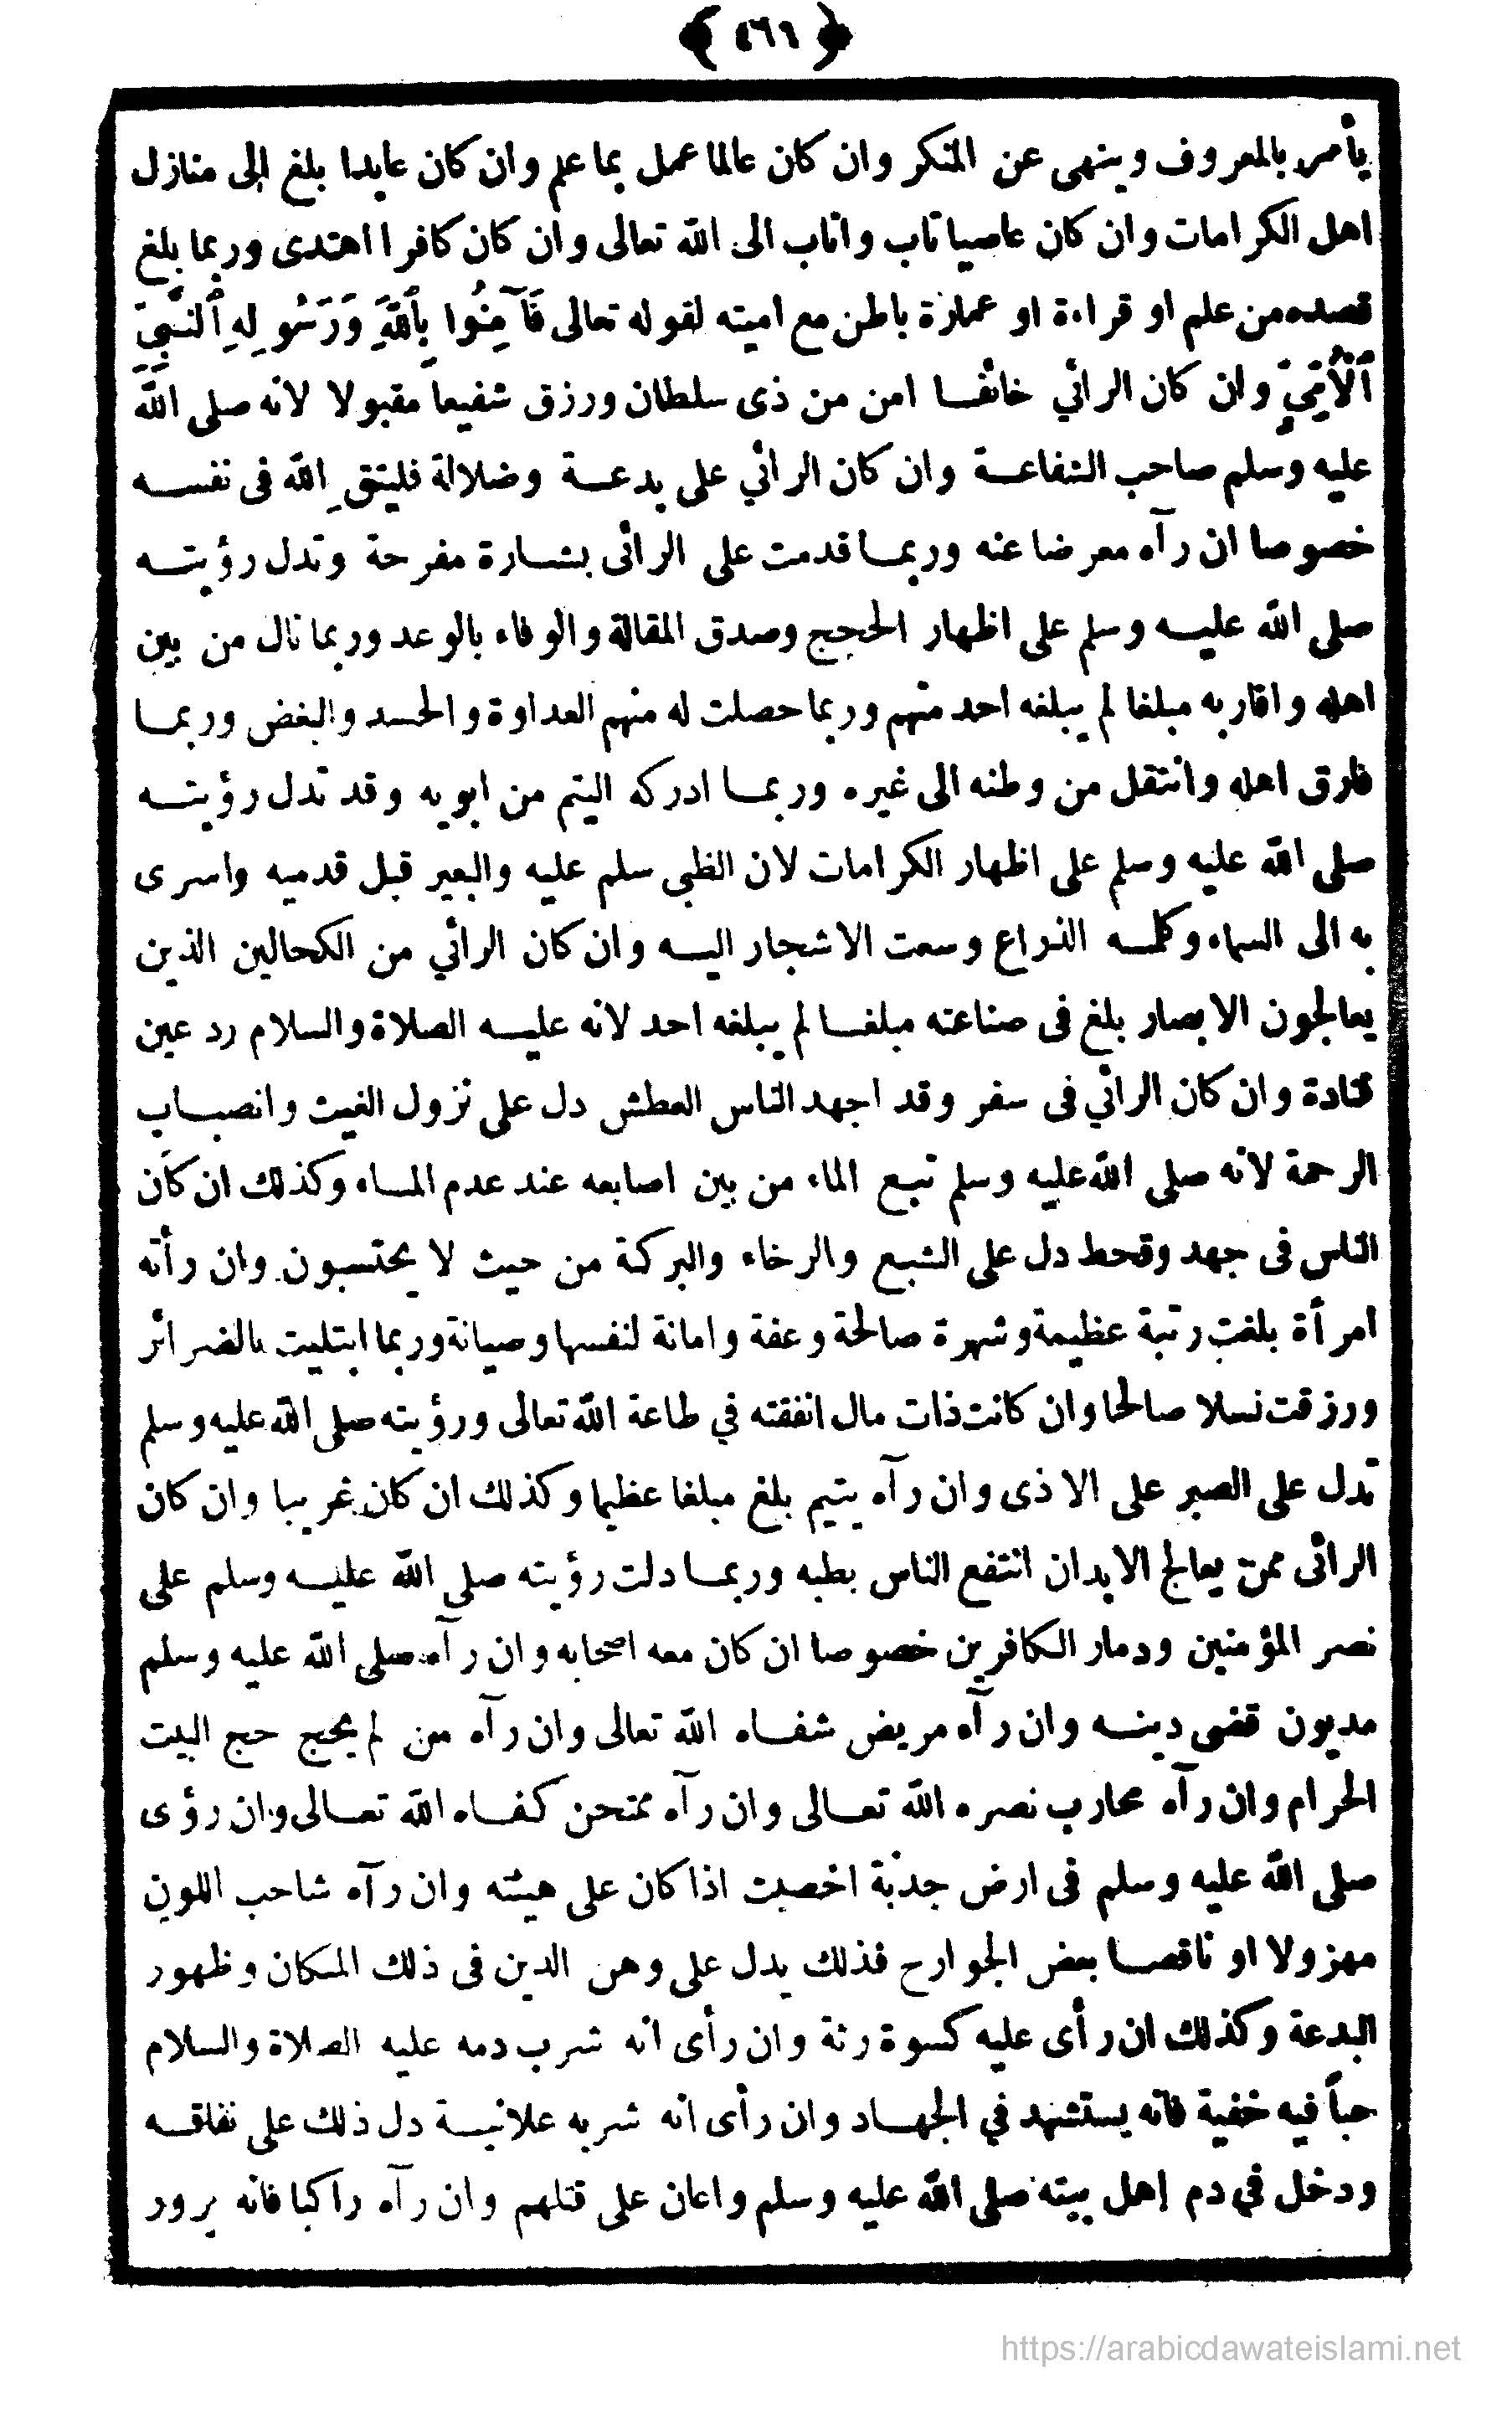 ﴿ ٤٦٦ ﴾
يأمر بالمعروف وينهى عن المنكر وان كان عالما عمل بما علم وان كان عابدا بلغ إلى منازل
اهل الكرامات وان كان عاصيا تاب واناب الى الله تعالى وان كان كافرا اهتدى وربما بلغ
قصده من علم او قراءة او عمارة باطن مع اميته لقوله تعالى فَآمِنُوا بِٱللَّهِ وَرَسُولِهِ ٱلنَّبِيِّ
ٱلْأُمِّيِّ وان كان الرائي خائفا امن من ذى سلطان ورزق شفيعاً مقبولا لانه صلى الله
عليه وسلم صاحب الشفاعة وان كان الرائي على بدعة وضلالة فليتقِ الله فى نفسه
خصوصا ان رآه معرضا عنه وربما قدمت على الرائى بشارة مفرحة وتدل رؤيته
صلى الله عليه وسلم على اظهار الحجج وصدق المقالة والوفاء بالوعد وربما نال من بين
اهله واقاربه مبلغا لم يبلغه احد منهم وربما حصلت له منهم العداوة والحسد والبغض وربما
فارق اهله وانتقل من وطنه الى غيره وربما ادركه اليتم من ابويه وقد تدل رؤيته
صلى الله عليه وسلم على اظهار الكرامات لان الظبى سلم عليه والبعير قبل قدميه واسرى
به الى السماء وكلمه الذراع وسعت الاشجار اليه وان كان الرائي من الكحالين الذين
يعالجون الابصار بلغ فى صناعته مبلغا لم يبلغه احد لانه عليه الصلاة والسلام رد عين
قتادة وان كان الرائي فى سفر وقد اجهد الناس العطش دل على نزول الغيث وانصباب
الرحمة لانه صلى الله عليه وسلم نبع الماء من بين اصابعه عند عدم الماء وكذلك ان كان
الناس فى جهد وقحط دل على الشبع والرخاء والبركة من حيث لا يحتسبون وان رأته
امرأة بلغت رتبة عظيمة وشهرة صالحة وعفة وامانة لنفسها وصيانة وربما ابتليت بالضرائر
ورزقت نسلا صالحا وان كانت ذات مال انفقته في طاعة الله تعالى ورؤيته صلى الله عليه وسلم
تدل على الصبر على الاذى وان رآه يتيم بلغ مبلغا عظيما وكذلك ان كان غريبا وان كان
الرائى ممن يعالج الابدان انتفع الناس بطبه وربما دلت رؤيته صلى الله عليه وسلم على
نصر المؤمنين ودمار الكافرين خصوصا ان كان معه اصحابه وان رآه صلى الله عليه وسلم
مديون قضى دينه وان رآه مريض شفاه الله تعالى وان رآه من لم يحج حج البيت
الحرام وان رآه محارب نصره الله تعالى وان رآه ممتحن كفاه الله تعالى وان رؤى
صلى الله عليه وسلم فى ارض جدبة اخصبت اذا كان على هيئته وان رآه شاحب اللون
مهزولا او ناقصا بعض الجوارح فذلك يدل على وهن الدين فى ذلك المكان وظهور
البدعة وكذلك ان رأى عليه كسوة رثة وان رأى انه شرب دمه عليه الصلاة والسلام
حباً فيه خفية فانه يستشهد في الجهاد وان رأى انه شربه علانية دل ذلك على نفاقه
ودخل في دم إهل بيته صلى الله عليه وسلم واعان على قتلهم وان رآه راكبا فانه يزور
https://arabicdawateislami.net